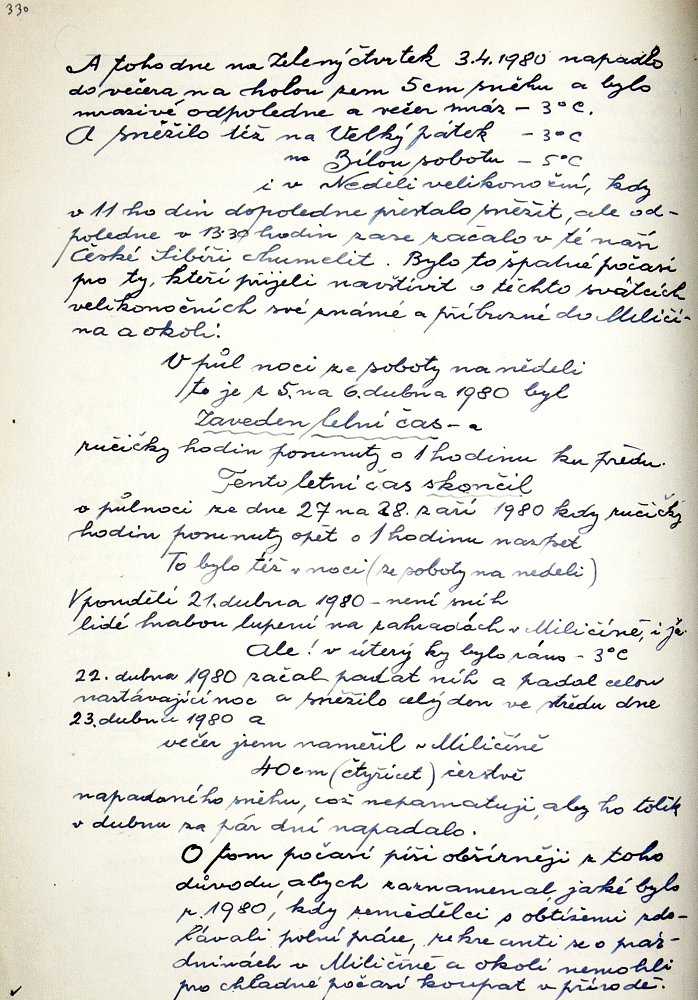 330
A toho dne na Zelený čtvrtek 3.4.1980 napadlo
do večera na holou zem 5cm sněhu a bylo
mrazivé odpoledne a večer mráz - 3°C.
A sněžilo též na Velký pátek - 3°C
na Bílou sobotu - 5°C
i v Neděli velikonoční, kdy
v 11 hodin dopoledne přestalo sněžit, ale od-
poledne v 13³⁰ hodin zase začalo v té naší
České Sibiři chumelit. Bylo to špatné počasí
pro ty, kteří přijeli navštívit o těchto svátcích
velikonočních své známé a příbuzné do Miličí-
na a okolí.
V půl noci ze soboty na neděli
to je z 5. na 6. dubna 1980 byl
Zaveden letní čas - a
ručičky hodin posunuty o 1 hodinu ku předu.
Tento letní čas skončil
o půlnoci ze dne 27 na 28. září 1980 kdy ručičky
hodin posunuty opět o 1 hodinu nazpět
To bylo též v noci (ze soboty na neděli)
V pondělí 21. dubna 1980 - není sníh
lidé hrabou lupení na zahradách v Miličíně, i já.
Ale! v úterý ky bylo ráno - 3°C
22. dubna 1980 začal padat níh a padal celou
nastávající noc a sněžilo celý den ve středu dne
23. dubna 1980 a
večer jsem naměřil v Miličíně
40cm (čtyřicet) čerstvě
napadaného sněhu, což nepamatuji, aby ho tolik
v dubnu za pár dní napadalo.
O tom počasí píši obšírněji z toho
důvodu, abych zaznamenal jaké bylo
r. 1980, kdy zemědělci s obtížemi zdo-
lávali polní práce, rekreanti se o práz-
dninách v Miličíně a okolí nemohli
pro chladné počasí koupat v přírodě.